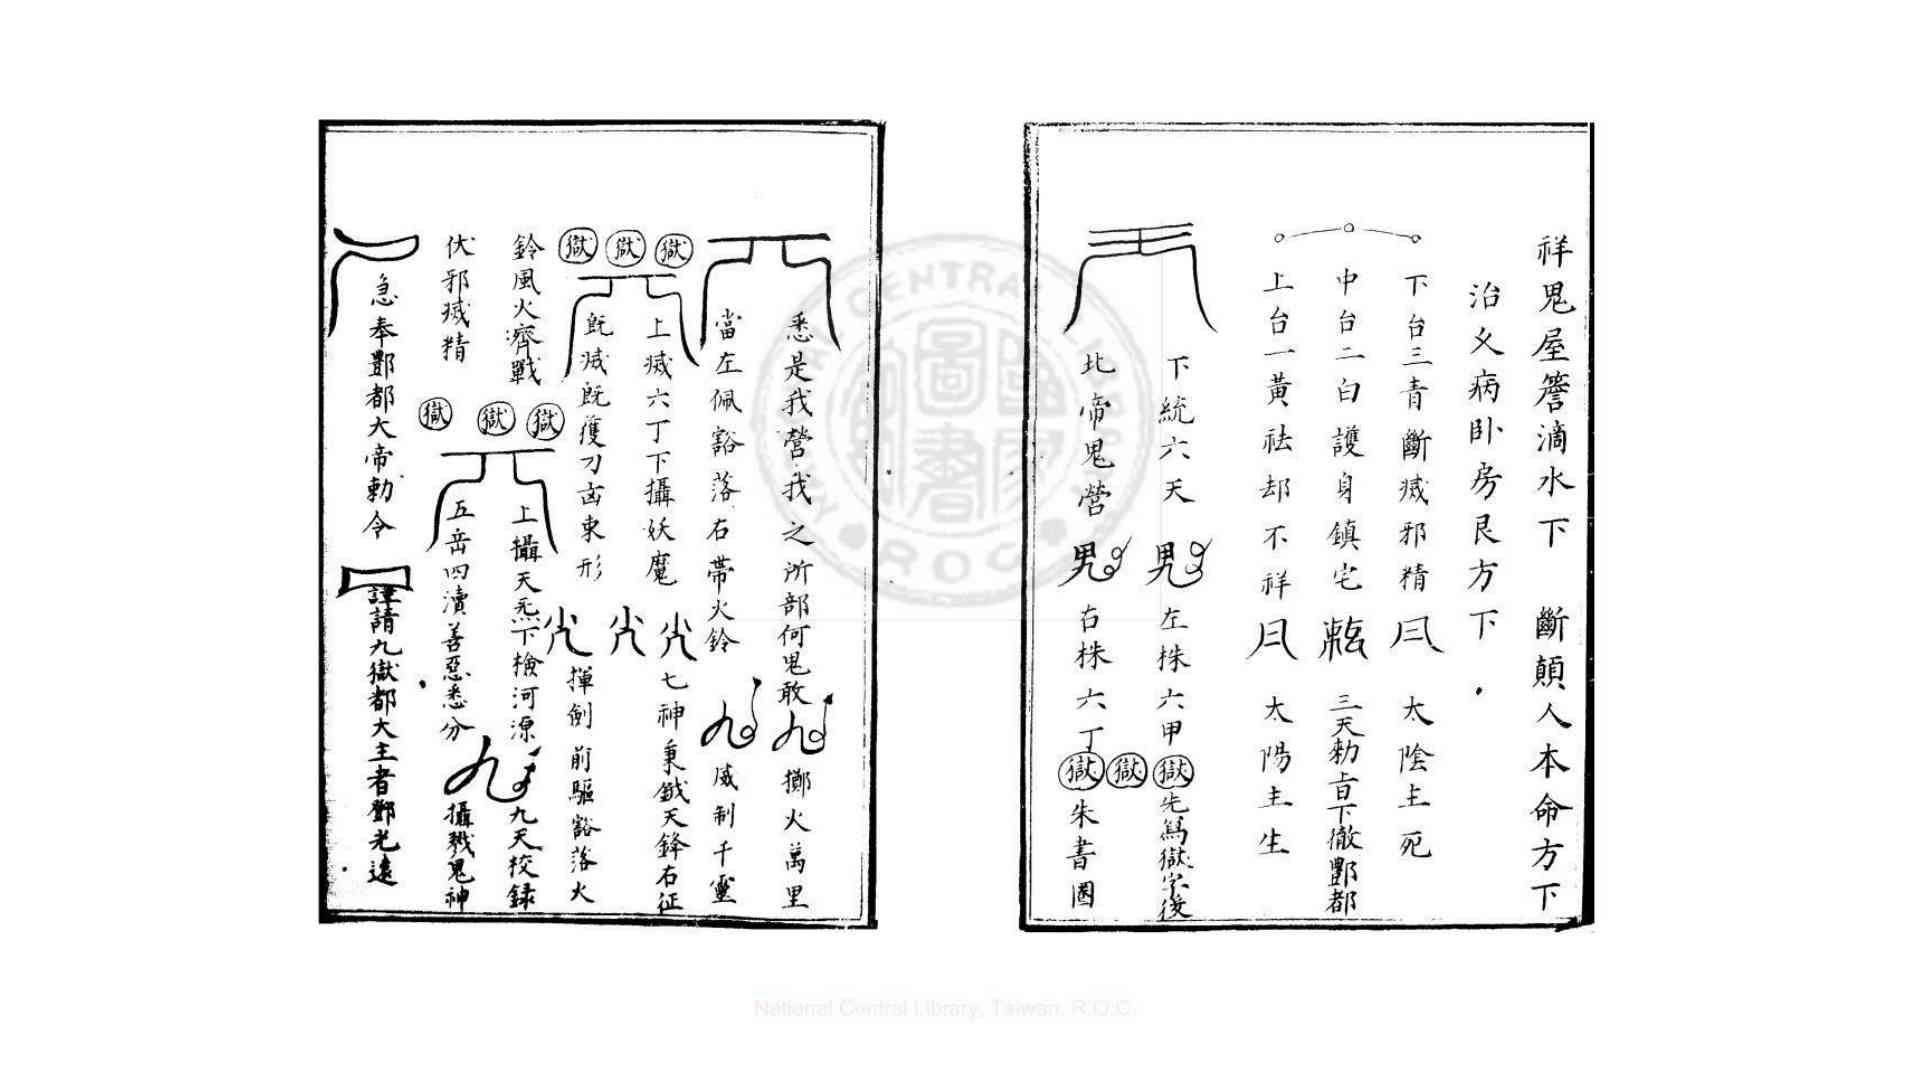 祥鬼屋簷滴水下　斷顛人本命方下
治久病卧房艮方下
下台三青斷滅邪精　太陰主死
中台二白護身鎮宅　三天勅旨下徹酆都
上台一黃祛却不祥　太陽主生
下統六天　左株六甲獄先爲獄字後
獄
北帝鬼營　右株六丁獄朱書圈
悉是我營我之所部何鬼敢　擲火萬里
當左佩豁落右帶火鈴　威制千靈
獄獄獄
上滅六丁下攝妖魔　七神秉鉞天鋒右征
旣滅旣獲刀凾束形　揮劍前驅豁落火
鈴風火齊戰
伏邪滅精
獄獄獄
上攝天炁下檢河源　九天校録
五岳四瀆善惡悉分　攝戮鬼神
急奉酆都大帝勅令　謹請九獄都大主者鄧光遠
National Central Library, Taiwan, R.O.C.